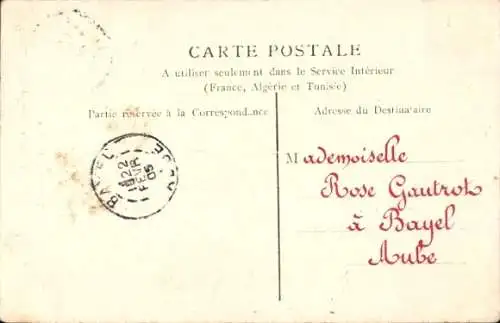 CARTE POSTALE
A utiliser seulement dans le Service Intérieur
(France, Algérie et Tunisie)
Partie réservée à la Correspondance
Adresse du Destinataire
BAYEL
AUBE
22
FEVR
05
Mademoiselle
Rose Gautrot
à Bayel
Aube